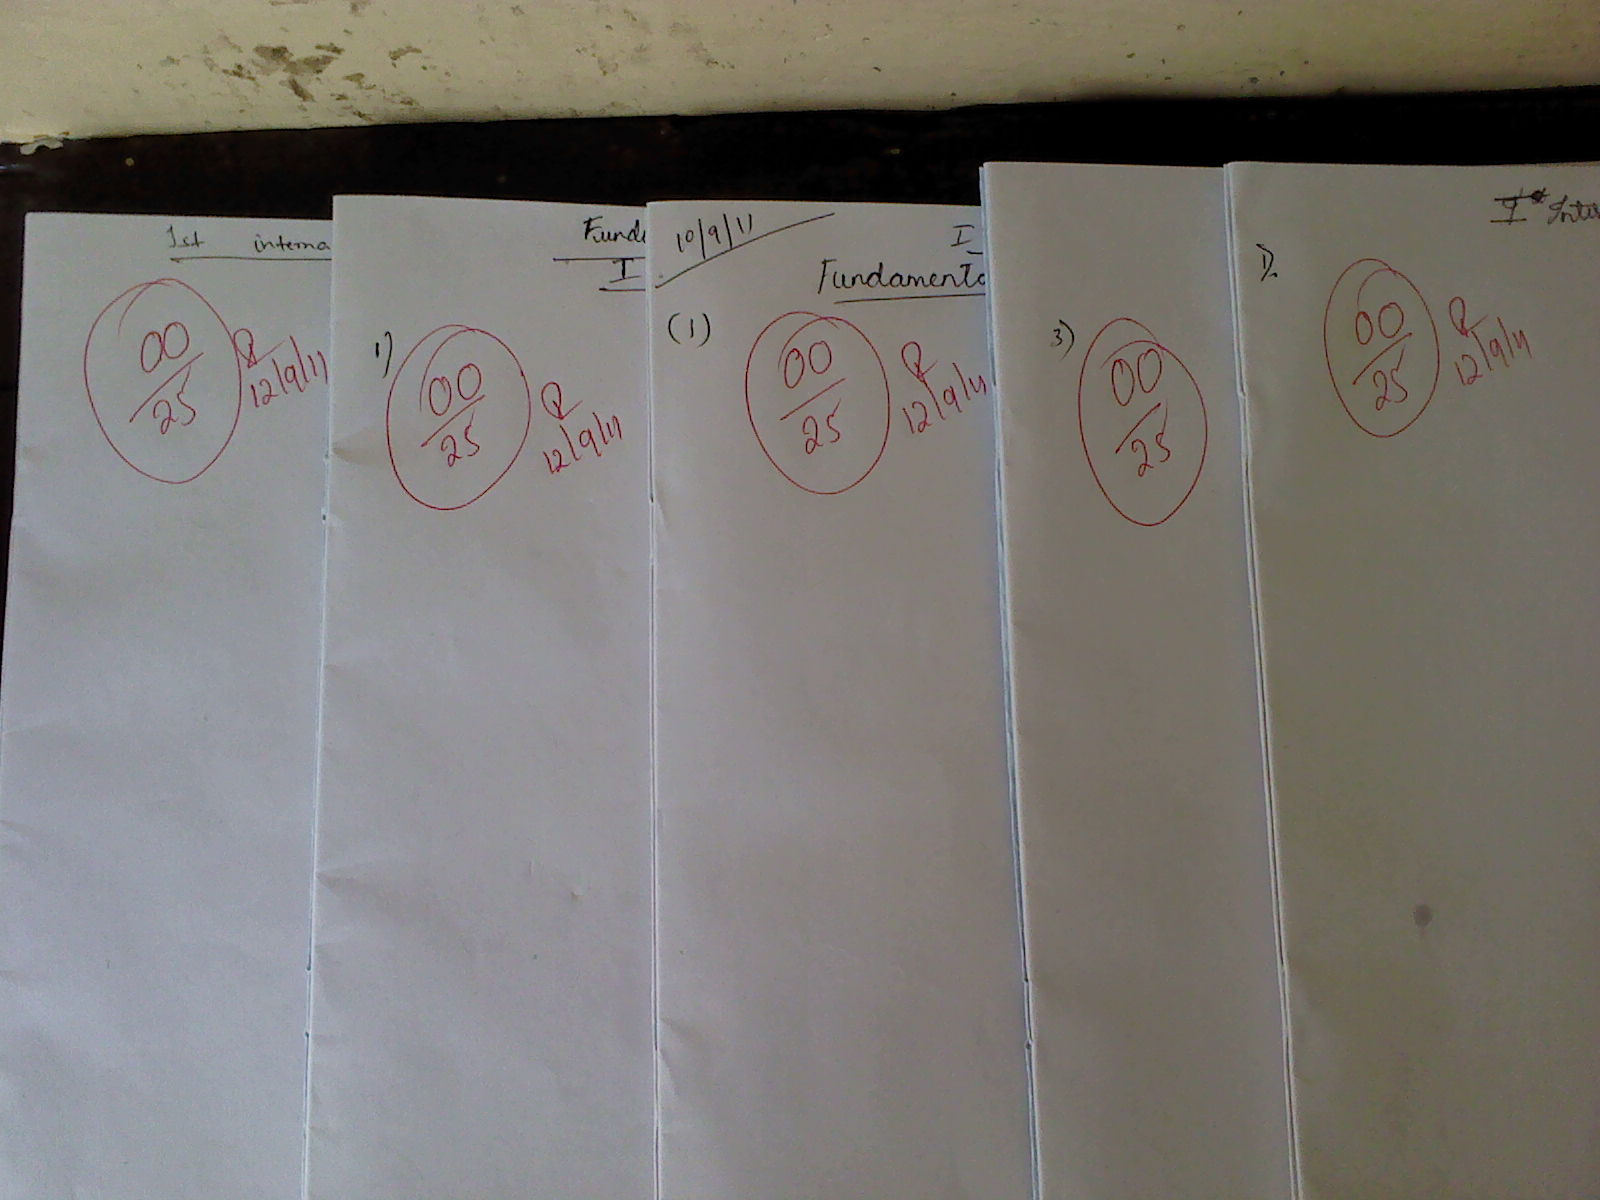 1st interna
00
25
12/9/11
Funda
I
1)
00
25
12/9/11
10/9/11
I
Fundamenta
(1)
00
25
12/9/11
3)
00
25
Ist Inter
1).
00
25
12/9/11